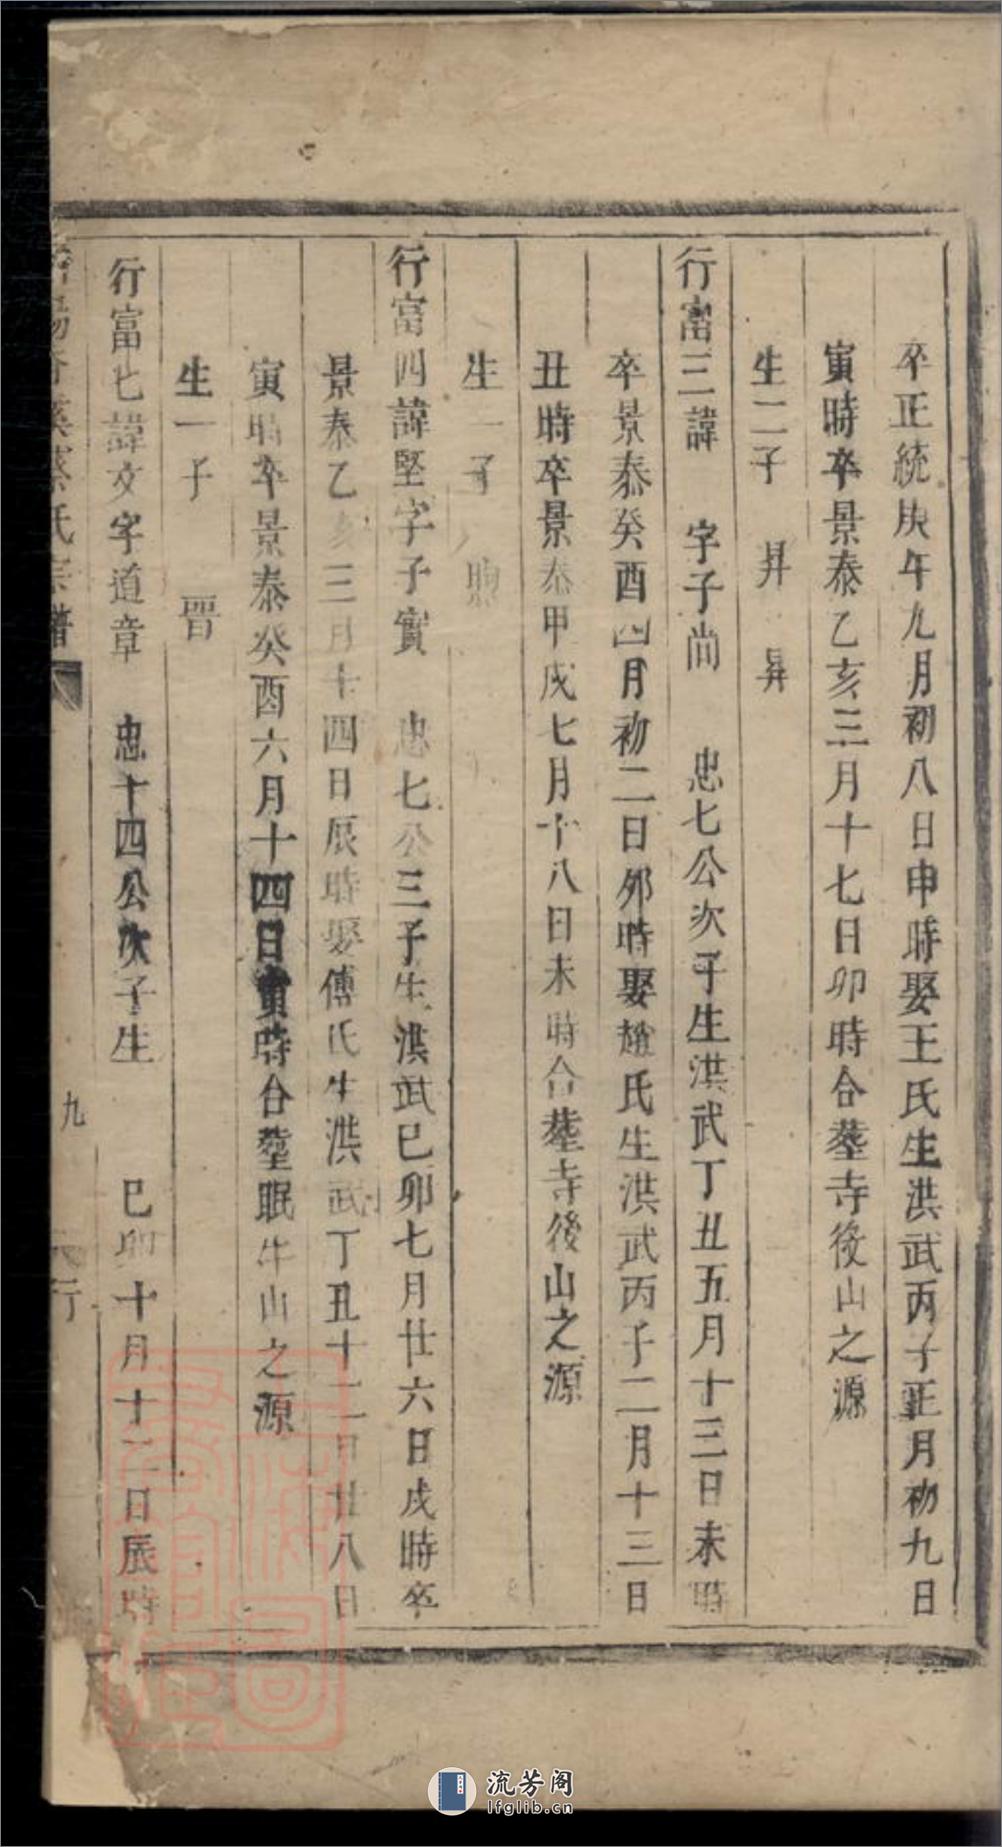 卒正統庚午九月初八日申時娶王氏生洪武丙子正月初九日
寅時卒景泰乙亥三月十七日卯時合墓寺後山之源
生二子 昇 昪
行富三諱 字子尚 忠七公次子生洪武丁丑五月十三日未時
卒景泰癸酉四月初二日夘時娶趙氏生洪武丙子二月十三日
丑時卒景泰甲戌七月十八日未時合墓寺後山之源
生一子 煦
行富四諱堅字子實 忠七公三子生洪武已卯七月廿六日戌時卒
景泰乙亥三月十四日辰時娶傅氏生洪武丁丑十二月廿八日
寅時卒景泰癸酉六月十四日寅時合墓眠牛山之源
生一子 晋
行富七諱文字道章 忠十四公次子生 巳卯十月十二日辰時
氏宗譜 九
流芳阁
lfglib.cn